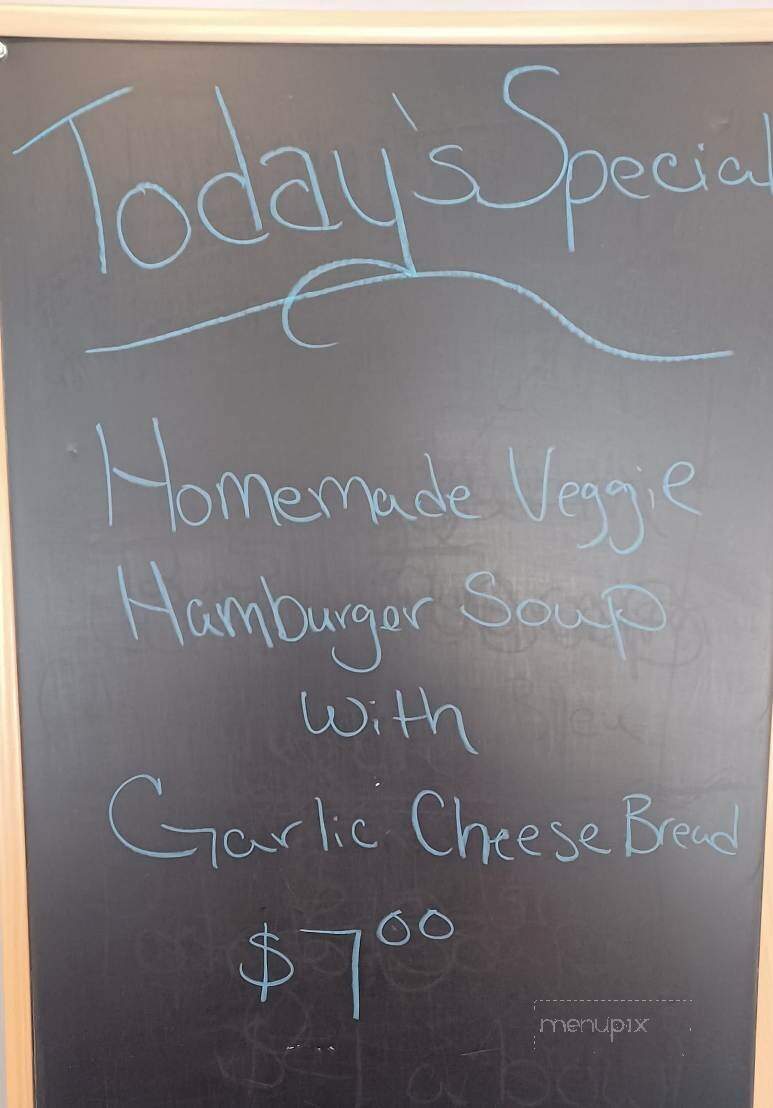 Today's Special
Homemade Veggie
Hamburger Soup
with
Garlic Cheese Bread
$7.00
menupix